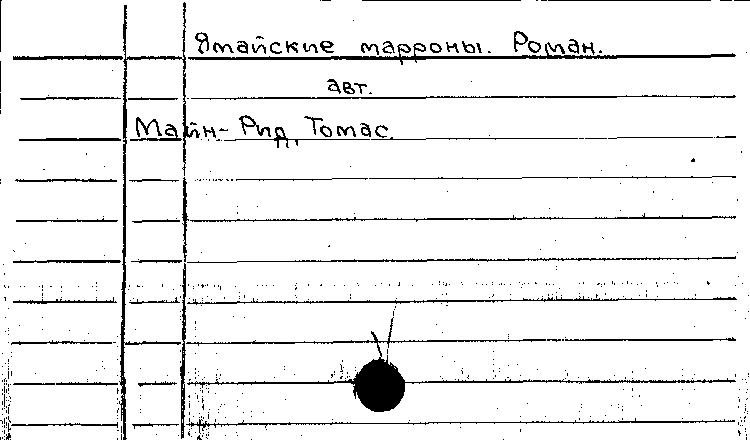 Ямайские марроны. Роман.
авт.
Майн-Рид, Томас.